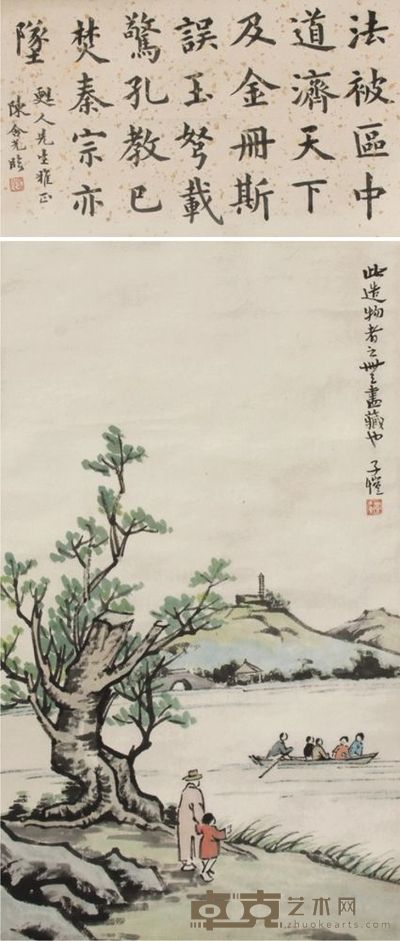 法被區中
道濟天下
及金冊斯
誤玉弩載
驚孔教已
焚秦宗亦
墜
甦人先生雅正
陳含光臨
此造物者之無盡藏也 子愷
卓克艺术网
zhuokearts.com